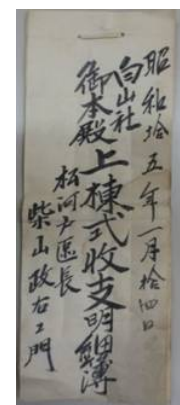 昭和拾五年一月拾四日
白山社
御本殿上棟式收支明細簿
松河戸区長
柴山政右ヱ門